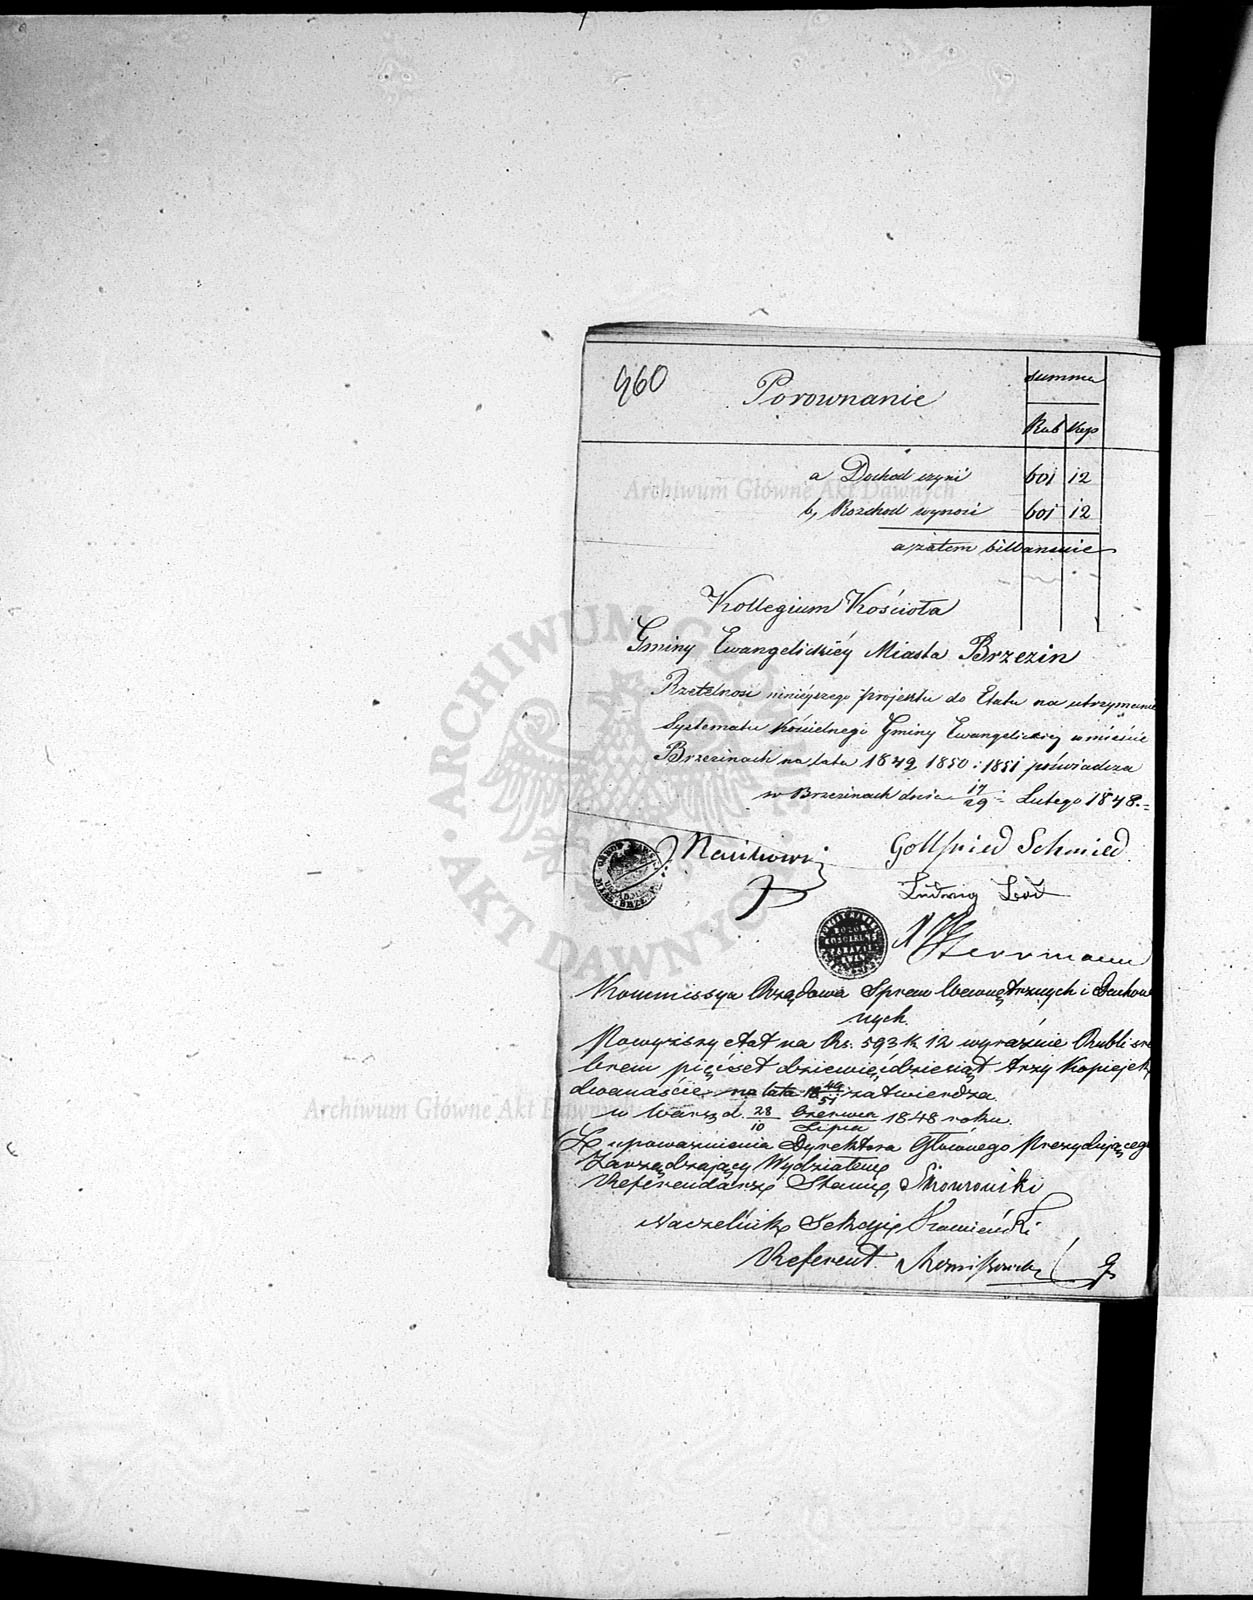 460
Porownanie
summa
Rub Kop
a Dochod czyni 601 12
b, Rozchod wynosi 601 12
a zatem billansuie
Kollegium Kościoła
Gminy Ewangelickiéy Miasta Brzezin
Rzetelnosć ninieyszego projektu do Etatu na utrzymanie
Systematu Kościelnego Gminy Ewangelickiey w mieście
Brzezinach na lata 1849 1850 i 1851 poświadcza
w Brzezinach dnia 17/29 Lutego 1848.
Gottfried Schmied.
Ludwig
Herrmann
Kommissya Rządowa Spraw Wewnętrznych i Duchow
nych.
Powyższy etat na Rs. 593 k. 12 wyraźnie Rubli sre
brem pięćset dziewięćdziesiąt trzy Kopiejek
dwanaście na lata 18 49/51 zatwierdza.
w Warsz d. 28/10 Czerwca/Lipca 1848 roku.
Z upoważnienia Dyrektora Głównego Prezydującego
Zarządzający Wydziałem
Referendarz Stanu,
Naczelnik Sekcyi Kamieński
Referent.
Archiwum Główne Akt Dawnych
Archiwum Główne Akt Dawnych
ARCHIWUM GŁÓWNE AKT DAWNYCH